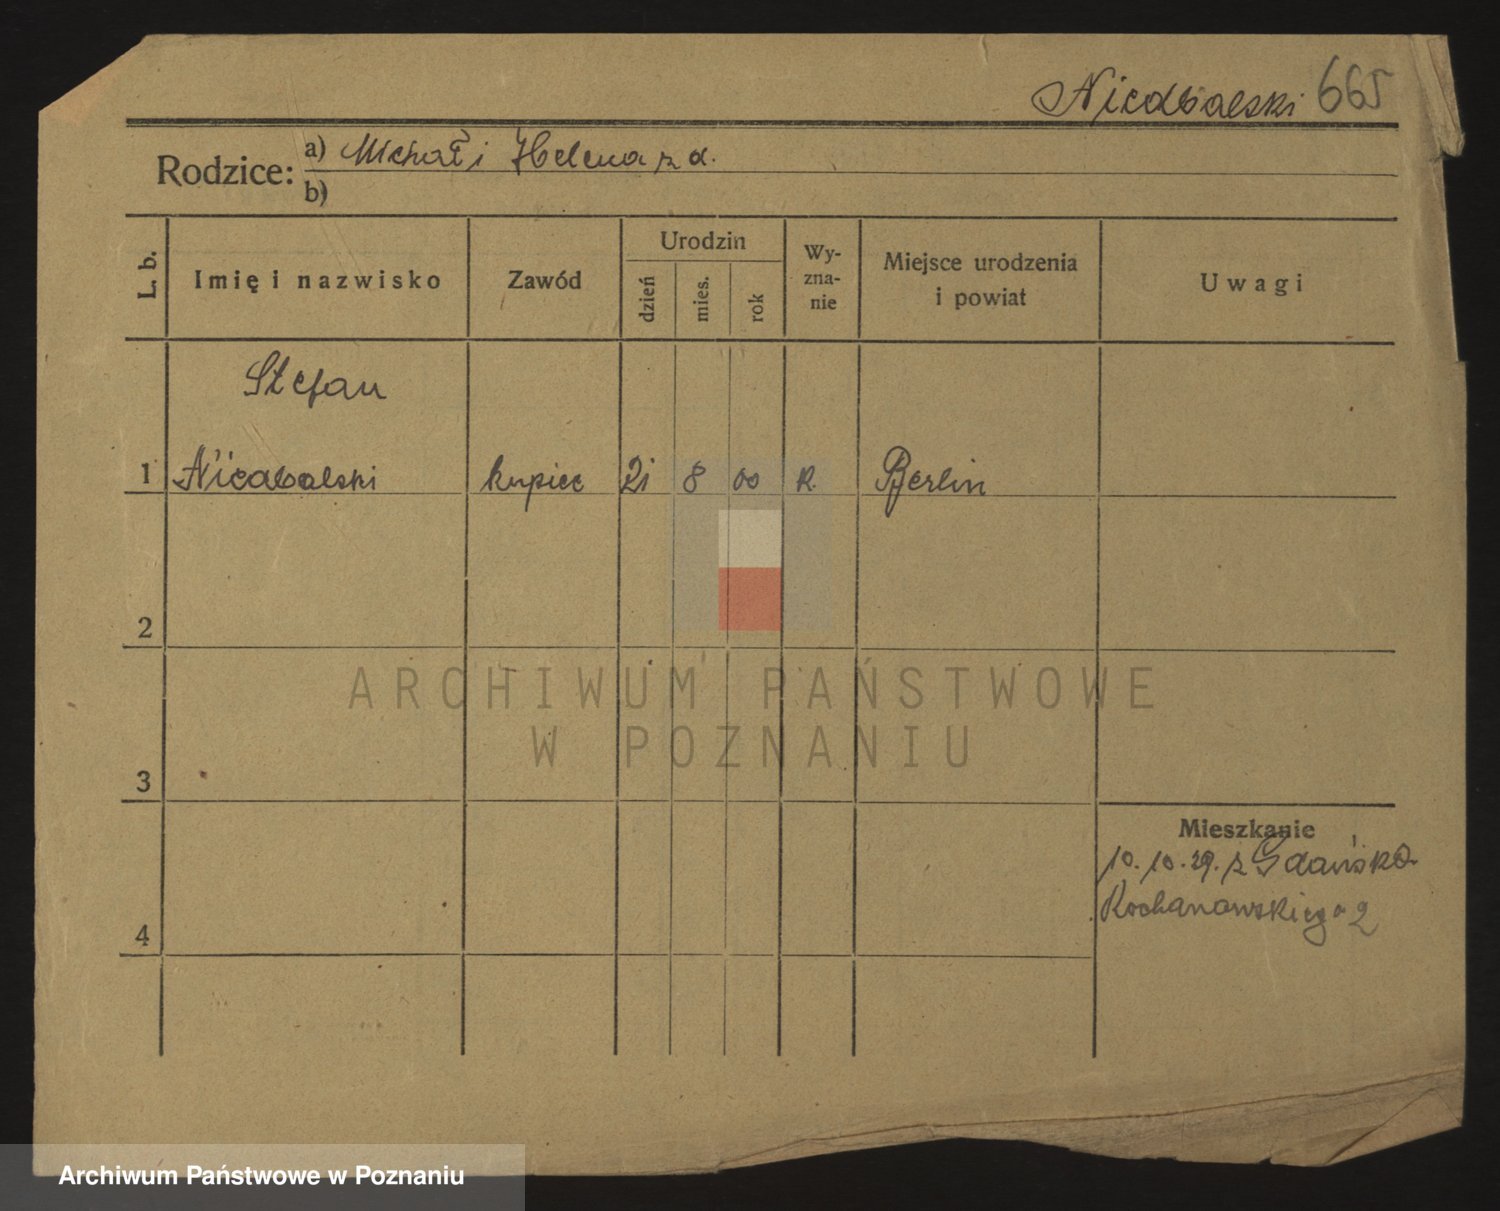 Niedbalski 665
Rodzice: a) Michał i Helena z d.
b)
L. b.
Imię i nazwisko
Zawód
Urodzin
dzień
mies.
rok
Wy-
zna-
nie
Miejsce urodzenia
i powiat
Uwagi
Stefan
1 Niedbalski kupiec 21 8 00 R. Berlin
2
3
4
Mieszkanie
10. 10. 29. z Gdańska
Kochanowskiego 2
ARCHIWUM PAŃSTWOWE
W POZNANIU
Archiwum Państwowe w Poznaniu